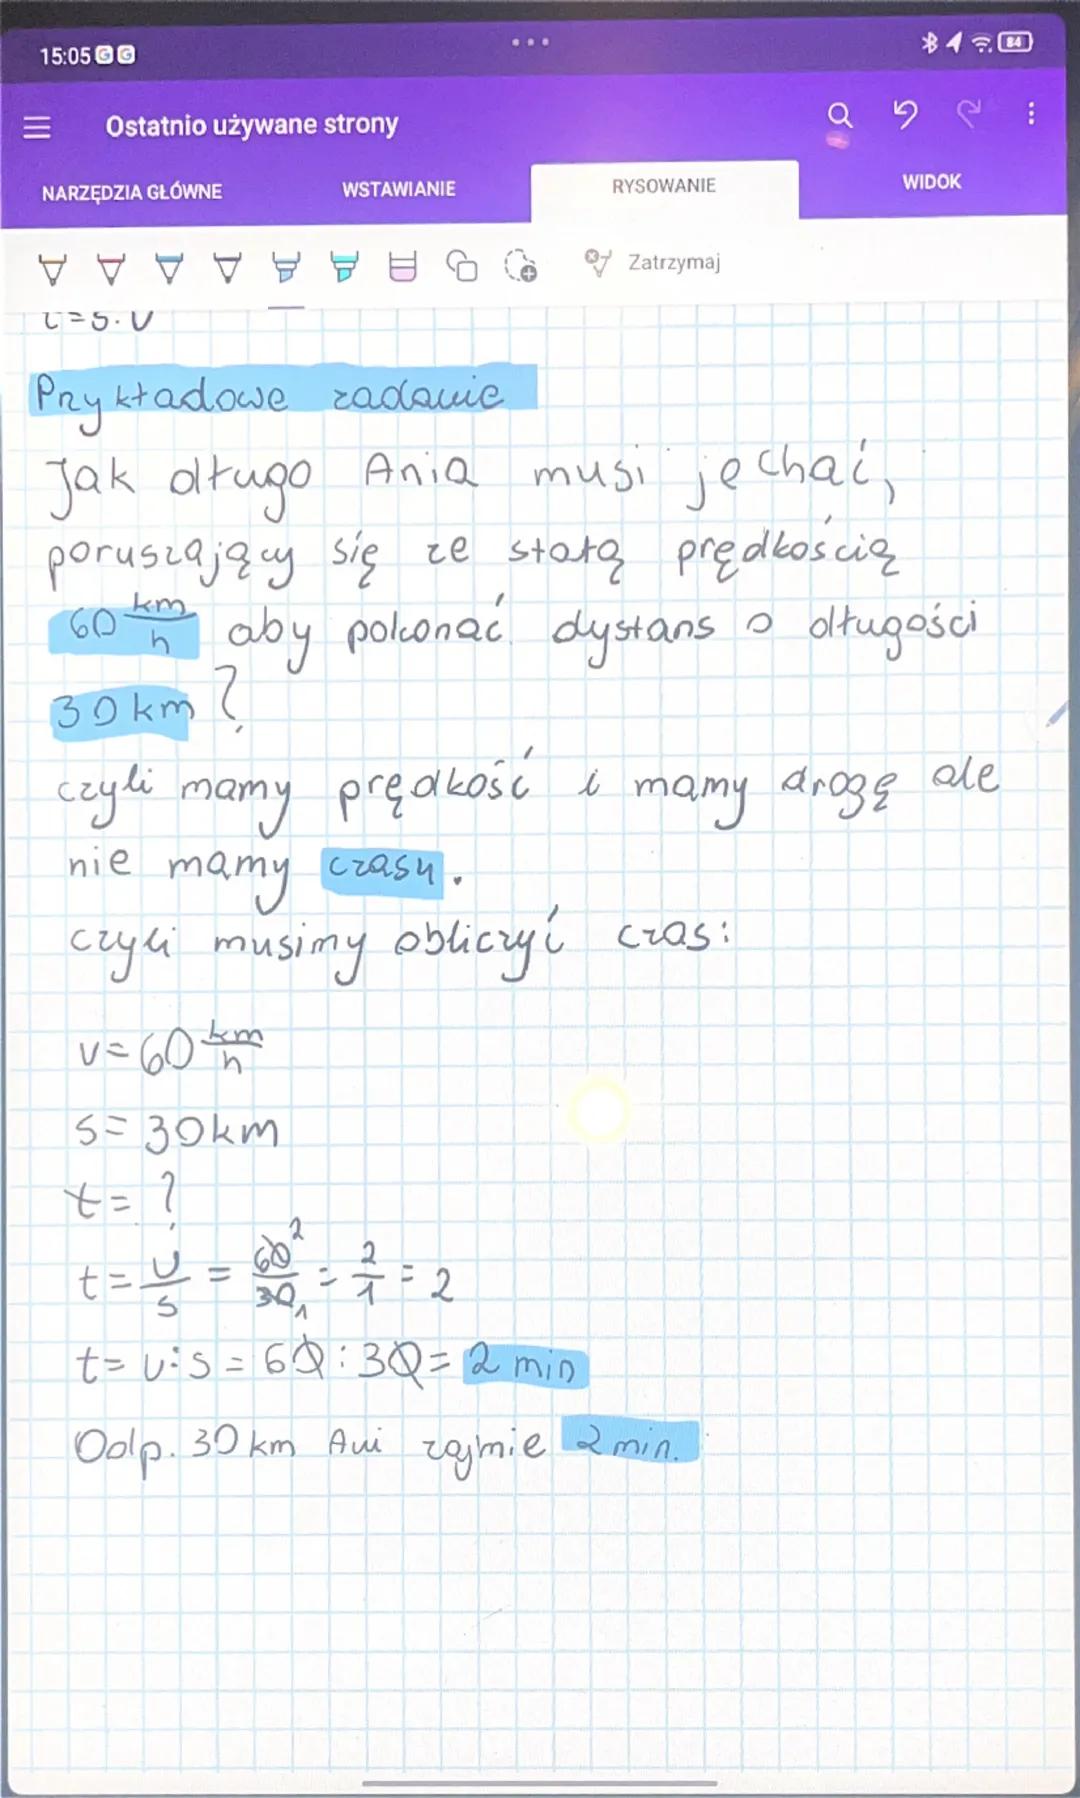 15:05
84
Ostatnio używane strony
NARZĘDZIA GŁÓWNE WSTAWIANIE RYSOWANIE WIDOK
Zatrzymaj
t=s·v
Przykładowe zadanie
Jak długo Ania musi jechać,
poruszający się ze stałą prędkością
60 km/h aby pokonać dystans o długości
30 km ?
czyli mamy prędkość i mamy drogę ale
nie mamy czasu.
czyli musimy obliczyć czas:
v=60 km/h
s=30km
t=?
t= v/s = 60²/30₁ = 2/1 = 2
t= v:s = 60:30= 2 min
Odp. 30 km Ani zajmie 2 min.